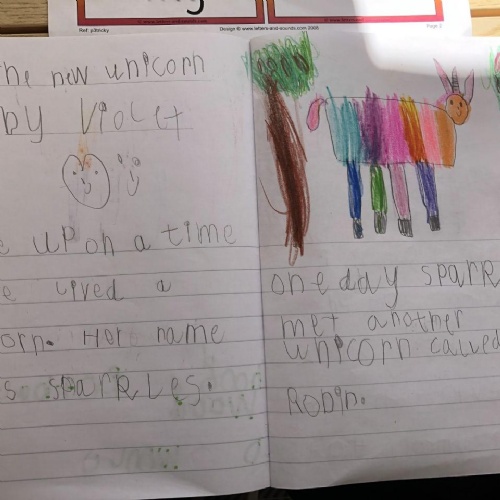 Ref: phhhcky
Design © www.letters-and-sounds.com 2008
Page 3
the new unicorn
by Violet
e up on a time
e lived a
orn. Her name
s sparkles.
one day spark
met another
unicorn called
Robin.